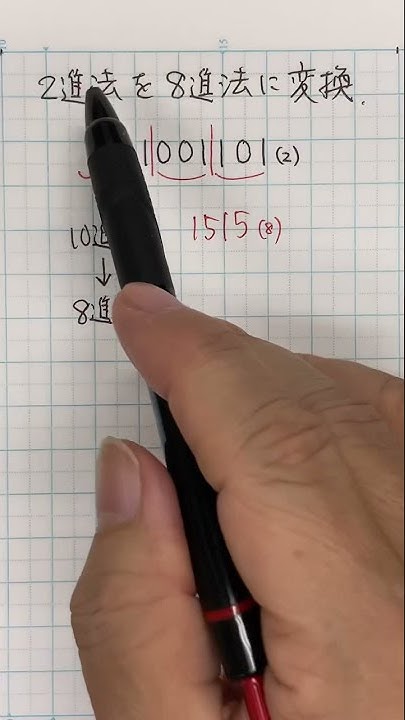 2進法を8進法に変換.
1001101(2)
1515(8)
10進
↓
8進